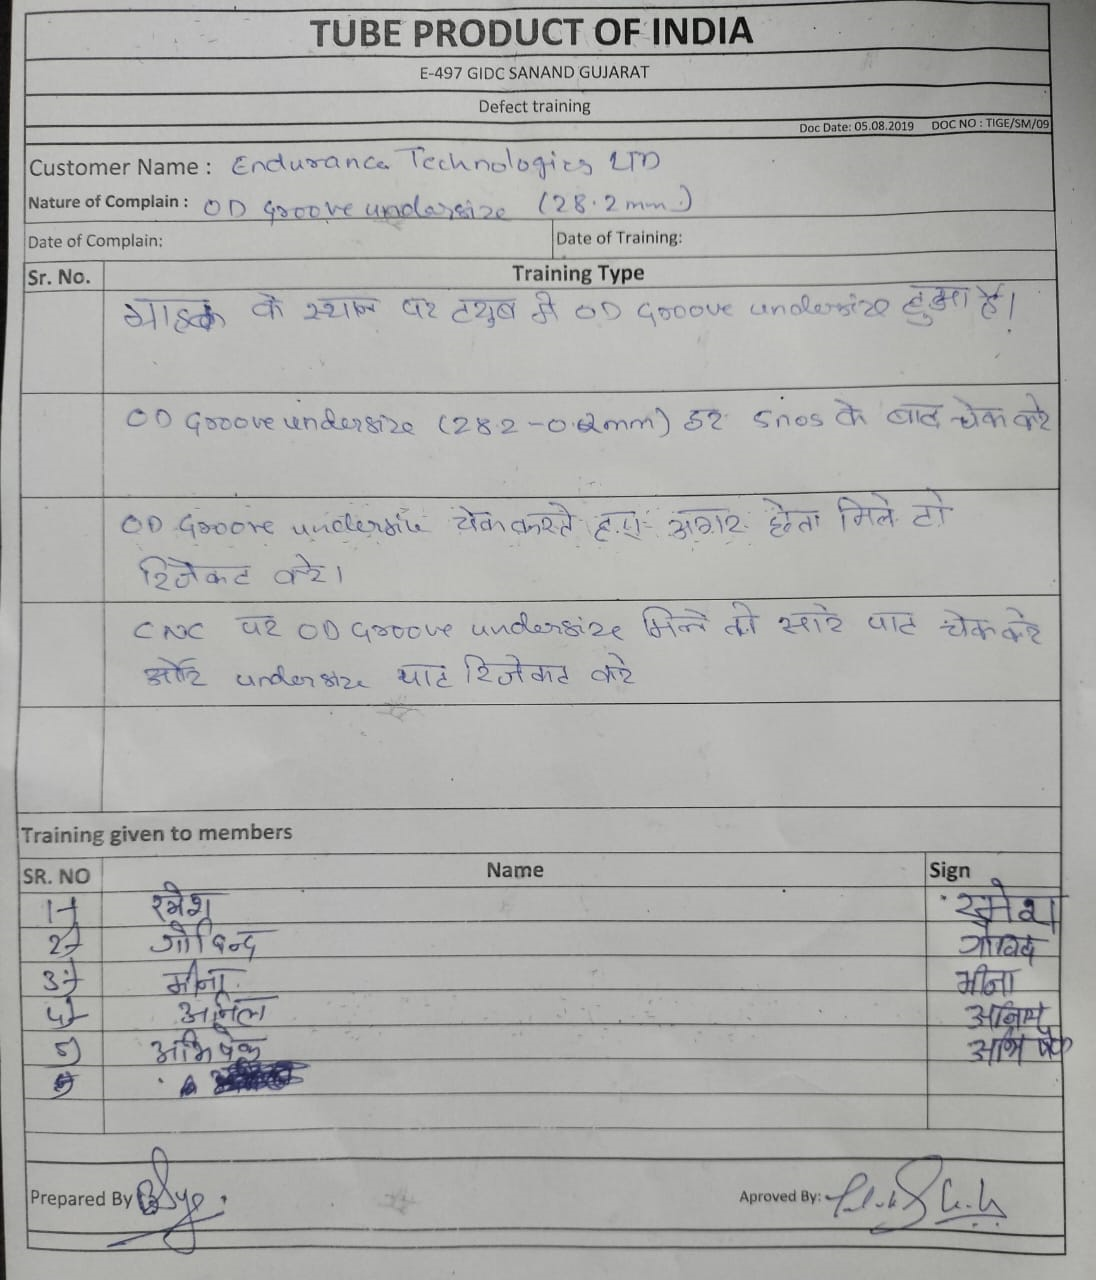 TUBE PRODUCT OF INDIA
E-497 GIDC SANAND GUJARAT
Defect training
Doc Date: 05.08.2019 DOC NO : TIGE/SM/09
Customer Name : Endurance Technologies LTD
Nature of Complain : OD Groove undersize (28.2 mm)
Date of Complain: Date of Training:
Sr. No. Training Type
ग्राहक के स्थान पर ट्युब में OD Grooove undersize हुआ है।
OD Grooove undersize (28.2 - mm) हर 5nos के बाद चेक करे
OD Groove चेक करते हुए अगर मिले तो
रिजेकट करे।
CNC पर OD Groove undersize मिले तो सारे पाट चेक करे
और undersize पाट रिजेकट करे
Training given to members
SR. NO Name Sign
1 रमेश रमेश
2 गोविन्द गोविंद
3 मीना मीना
4 अनिल
5 अभिषेक अभिषेक
Prepared By
Aproved By: